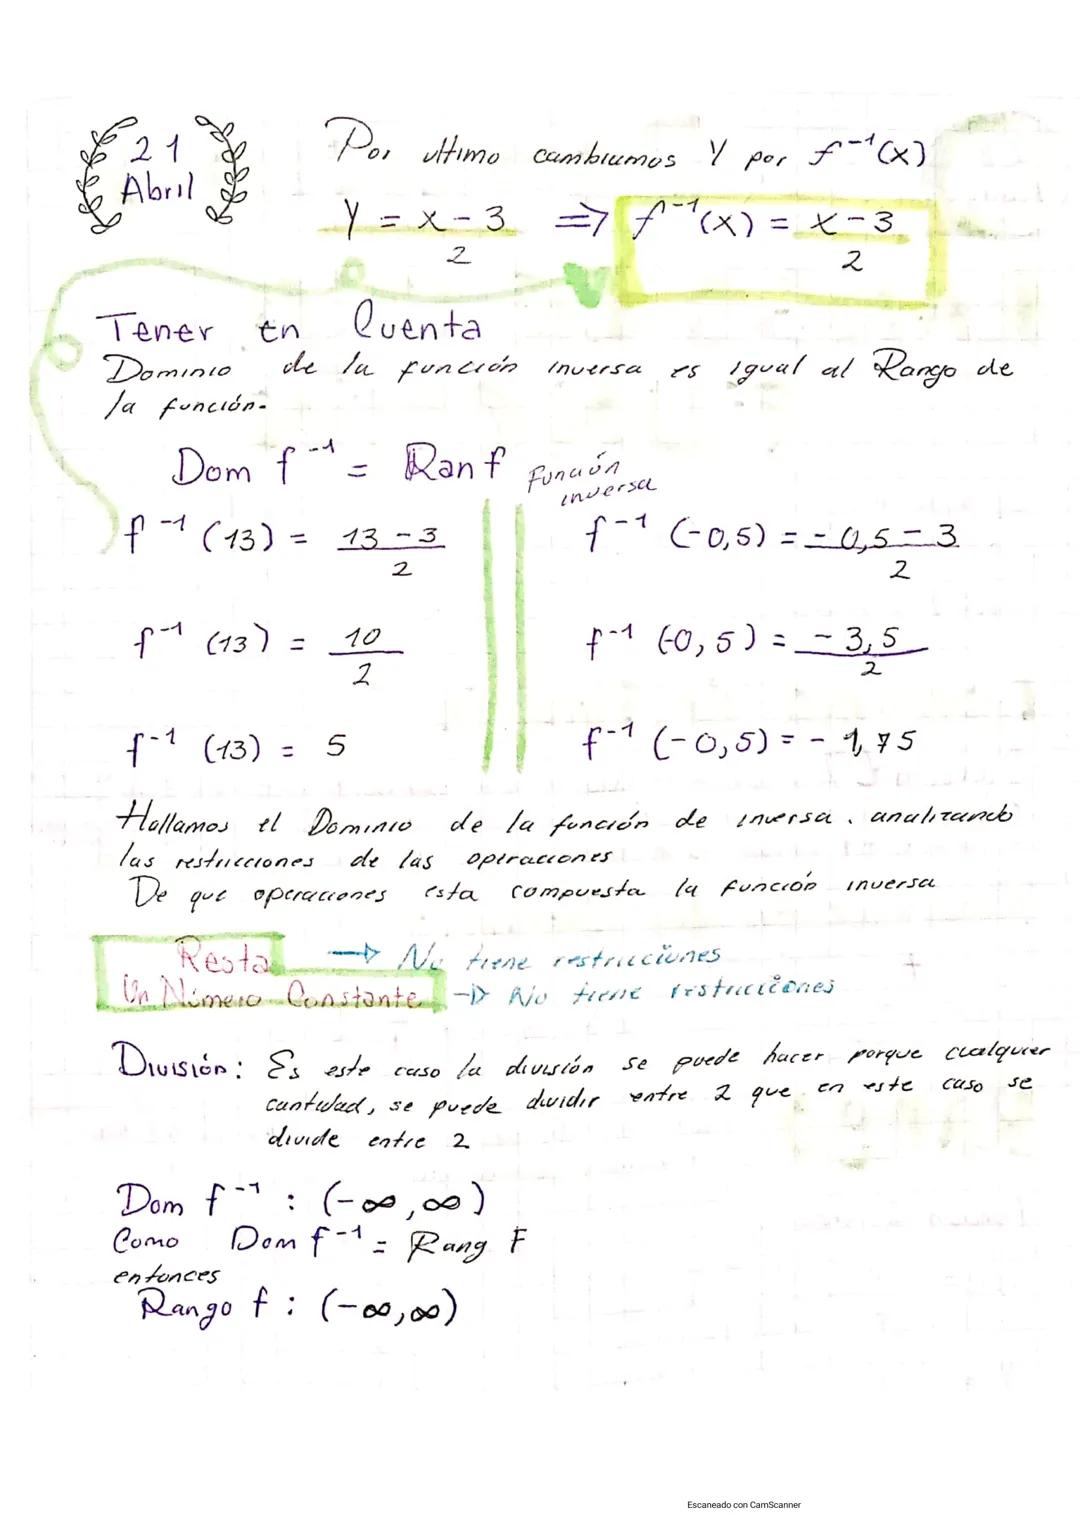 21
Abril
Por ultimo cambiamos Y por f⁻¹(x)
Y = x - 3 / 2 => f⁻¹(x) = x - 3 / 2
Tener en Cuenta
Dominio de la función inversa es igual al Rango de
la función.
Dom f⁻¹ = Ran f Función
inversa
f⁻¹ (13) = 13 - 3 / 2
f⁻¹ (13) = 10 / 2
f⁻¹ (13) = 5
f⁻¹ (-0,5) = - 0,5 - 3 / 2
f⁻¹ (-0,5) = - 3,5 / 2
f⁻¹ (-0,5) = - 1,75
Hallamos el Dominio de la función de inversa. analizando
las restricciones de las operaciones
De que operaciones esta compuesta la función inversa
Resta → No tiene restricciones
Un Número Constante → No tiene restricciones
División: Es este caso la división se puede hacer porque cualquier
cantidad, se puede dividir entre 2 que en este caso se
divide entre 2
Dom f⁻¹ : (-∞,∞)
Como Dom f⁻¹ = Rang F
entonces
Rango f : (-∞,∞)
Escaneado con CamScanner